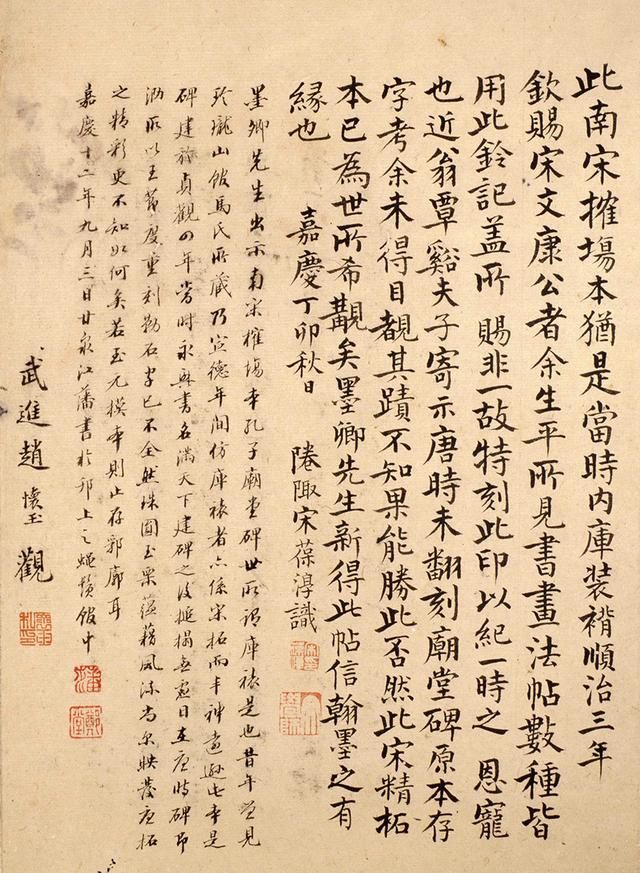 此南宋搉場本猶是當時內庫装褙順治三年
欽賜宋文康公者余生平所見書畫法帖數種皆
用此鈐記盖所 賜非一故特刻此印以紀一時之 恩寵
也近翁覃谿夫子寄示唐時未翻刻廟堂碑原本存
字考余未得目覩其蹟不知果能勝此否然此宋精拓
本已為世所希覯矣墨卿先生新得此帖信翰墨之有
緣也 嘉慶丁卯秋日 陬宋葆淳識
墨卿先生出示南宋搉場本孔子廟堂碑世所謂庫裱是也昔年曾見
玲瓏山館馬氏所藏乃宣德年間仿庫裱者亦係宋拓而丰神遠遜此本是
碑建於貞觀四年當時永興書名滿天下建碑之後搥搨無虛日至唐時碑即
泐所以王節度重刻勒石字已不全然珠圓玉栗蕴藉風流尚尔映發唐拓
之精彩更不知如何矣若至元摸本則止存郭廓耳
嘉慶十二年九月三日甘泉江藩書於邗上之蠅鬚館中
藩
鄭堂
武進趙懷玉觀